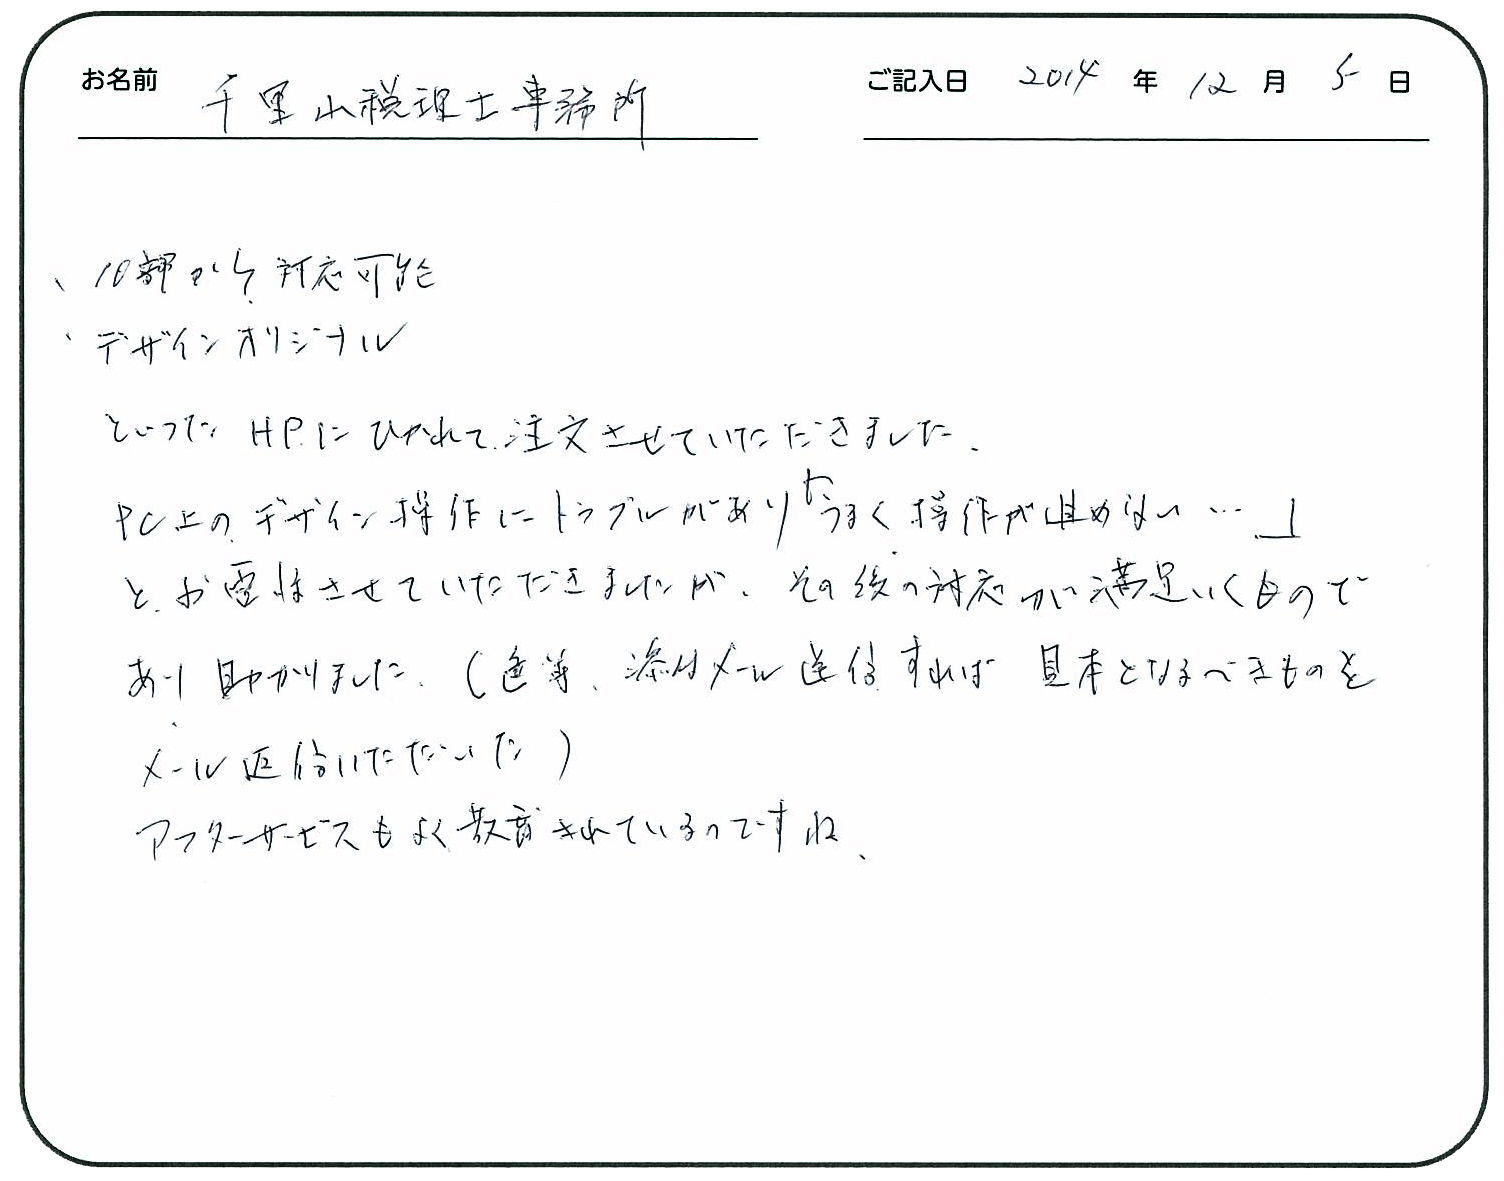 お名前 千里山税理士事務所 ご記入日 2014 年 12 月 5 日
、10部から対応可能
、デザインオリジナル
といった HPにひかれて注文させていただきました.
PC上のデザイン操作にトラブルがあり「うまく操作が進めない…」
と、お電話させていただきましたが、その後の対応が満足いくもので
あり助かりました.(色等、添付メール送信すれば見本となるべきものを
メール返信いただいた)
アフターサービスもよく教育されているのですね、